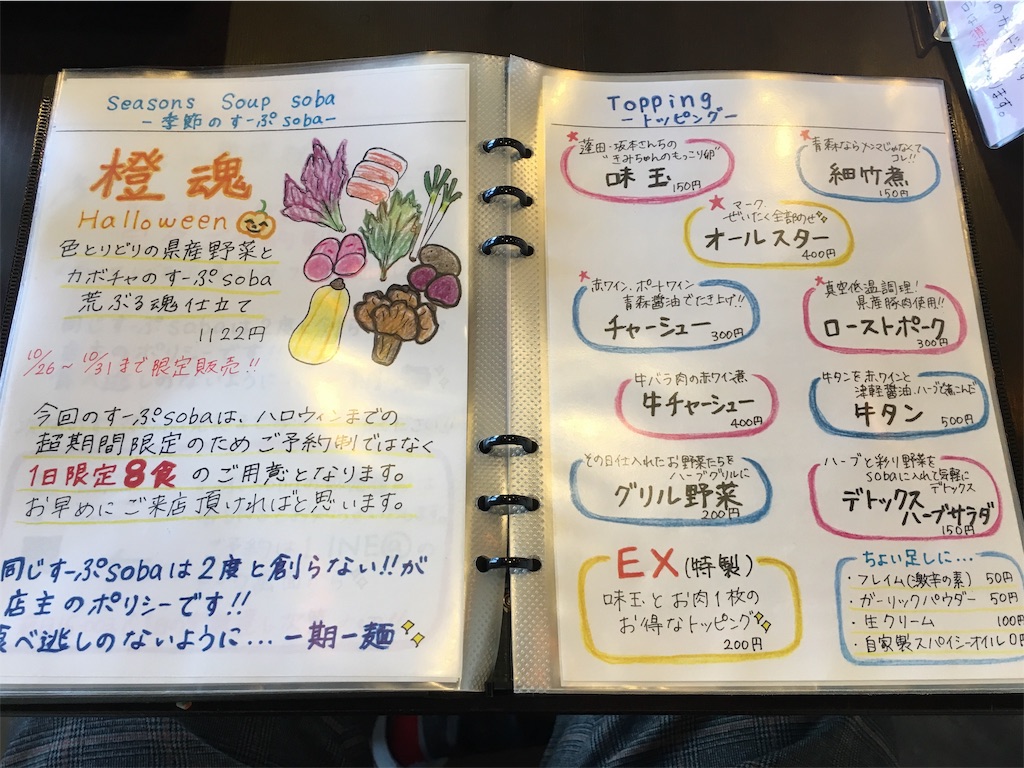 Seasons Soup soba
-季節のすーぷsoba-
橙魂
Halloween
色とりどりの県産野菜と
カボチャのすーぷsoba
荒ぶる魂仕立て
1122円
10/26~10/31まで限定販売!!
今回のすーぷsobaは、ハロウィンまでの
超期間限定のためご予約制ではなく
1日限定8食のご用意となります。
お早めにご来店頂ければと思います。
同じすーぷsobaは2度と創らない!!が
店主のポリシーです!!
食べ逃しのないように...一期一麺
Topping
-トッピング-
蓬田・坂本さんちの
"きみちゃんのもっこり卵"
味玉
150円
青森ならメンマじゃなくて
コレ!!
細竹煮
150円
マーク、
ぜいたく全部のせ
オールスター
400円
赤ワイン、ポートワイン
青森醤油でたき上げ!!
チャーシュー
300円
真空低温調理!
県産豚肉使用!!
ローストポーク
300円
牛バラ肉の赤ワイン煮
牛チャーシュー
400円
牛タンを赤ワインと
津軽醤油、ハーブで煮こんだ
牛タン
500円
その日仕入れたお野菜たちを
ハーブグリルに
グリル野菜
200円
ハーブと彩り野菜を
sobaに入れて気軽に
デトックス
デトックス
ハーブサラダ
150円
EX(特製)
味玉とお肉1枚の
お得なトッピング
200円
ちょい足しに...
・フレイム(激辛の素) 50円
・ガーリックパウダー 50円
・生クリーム 100円
・自家製スパイシーオイル 0円